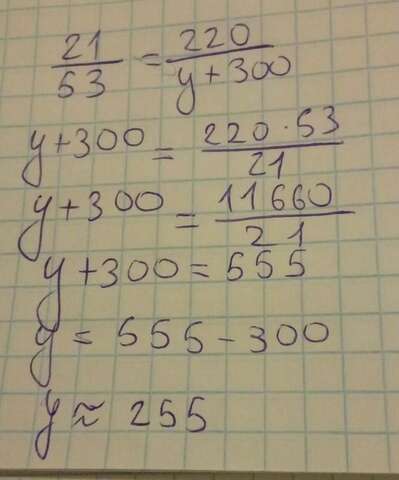 21/53 = 220/y+300
y+300 = 220·53/21
y+300 = 11660/21
y+300 = 555
y = 555-300
y ≈ 255